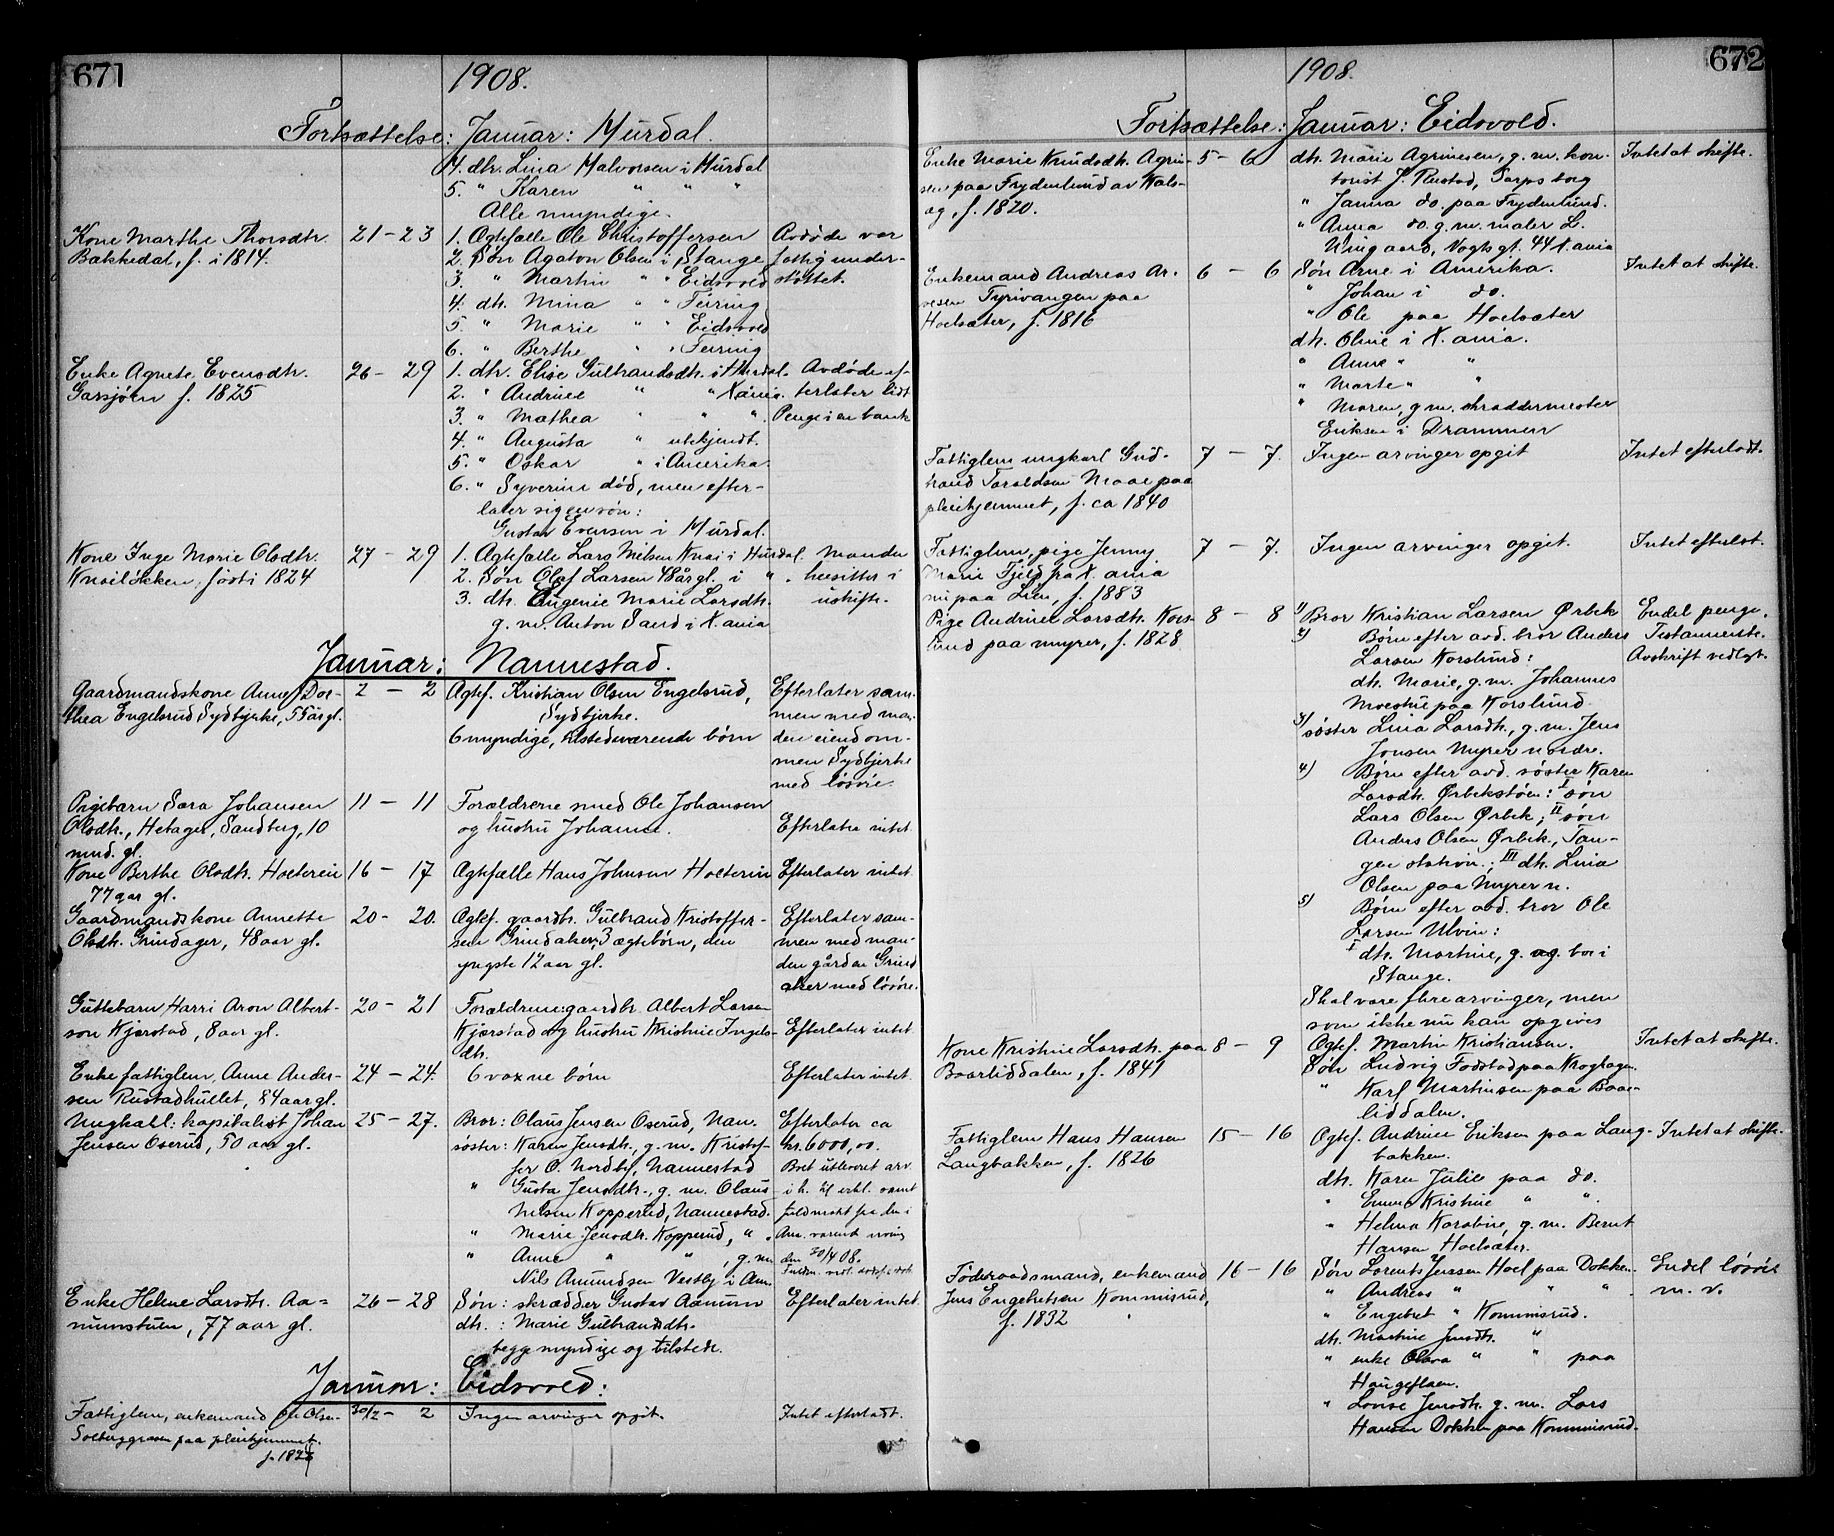 671
1908.
Fortsættelse: Januar: Hurdal.
4. dtr. Lina Halvorsen i Hurdal
5. " Karen " " "
Alle myndige.
Kone Marthe Thorsdtr. 21 - 23 1. Ægtefælle Ole Christoffersen Avdøde var
Bakkedal, f. i 1814. 2. Søn Agaton Olsen i Stange fattigunder-
3. " Martin " " Eidsvold støttet.
4. dtr. Mina " " Feiring
5. " Marie " " Eidsvold
6. " Berthe " " Feiring
Enke Agnete Evensdtr. 26 - 29 1. dtr. Elise Gulbrandsdtr. i Hurdal. Avdøde ef-
Garsjøen f. 1825 2. " Andrine " " Xania. terlater lidt
3. " Mathea " " " Penge i en bank
4. " Augusta " ubekjendt.
5. " Oskar " i Amerika.
6. " Syverine død, men efter-
later sig en søn:
Gustav Evensen i Hurdal.
Kone Inge Marie Olsdtr. 27 - 29 1. Ægtefælle Lars Nilsen Knai i Hurdal. Manden
Knailøkken, født i 1824 2. Søn Olaf Larsen 48 år gl. i " hensitter i
3. dtr. Eugenie Marie Larsdtr. uskifte.
g. m. Anton Sand i X.ania
Januar: Nannestad.
Gaardmandskone Anne Dor- 2 - 2 Ægtef. Kristian Olsen Engelsrud, Efterlater sam-
thea Engelsrud Sydbjerke, 55 år gl. Sydbjerke. men med man-
6 myndige, tilstedeværende børn den eiendom-
men Sydbjerke
med løsøre.
Pigebarn Sara Johansen 11 - 11 Forældrene smed Ole Johansen
Olsdtr., Hetager, Sandberg, 10 og hustru Johanne. Efterlater intet
mnd. gl.
Kone Berthe Olsdtr. Holterein 16 - 17 Ægtefælle Hans Johnsen Holterein Efterlater intet
77 aar gl.
Gaardmandskone Annette 20 - 20. Ægtef. gaardbr. Gulbrand Kristoffer- Efterlater sam-
Olsdtr. Grindager, 48 aar gl. sen Grindaker, 3 ægtebørn, den men med man-
yngste 12 aar gl. den gården Grind
aker med løsøre.
Guttebarn Harri Aron Albert- 20 - 21 Forældrene: gaardbr. Albert Larsen
son Kjærstad, 8 aar gl. Kjærstad og hustru Kristine Ingels- Efterlater intet
dtr.
Enke fattiglem, Anne Ander- 24 - 24. 6 voxne børn Efterlater intet.
sen Rustadhullet, 84 aar gl.
Ungkarl: kapitalist Johan 25 - 27. Bror: Olaus Jensen Oserud, Nan. Efterlater ca
Jensen Oserud, 50 aar gl. søster: Karen Jensdtr., g. m. Kristof- kr. 6000,00.
fer O. Nordby, Nannestad Boet utleveret arv.
" Gusta Jensdtr., g. m. Olaus i h. til erkl. samt
Nilsen Kopperud, Nannestad. fuldmakt fra den i
" Marie Jensdtr. Kopperud, " .
" Anne " " , g. m. den 30/4 08.
Nils Amundsen Vestby i Am.
Enke Helene Larsdtr. Aa- 26 - 28 Søn: skrædder Gustav Aanum Efterlater intet.
numstuen, 77 aar gl. dtr.: Marie Gulbrandsdtr.
begge myndige og tilstede.
Januar: Eidsvold:
Fattiglem, enkemand Olsen 30/12 - 2 Ingen arvinger opgit. Intet efterladt.
paa pleiehjemmet.
672
1908.
Fortsættelse: Januar: Eidsvold.
Enke Marie Knudsdtr. Agrim- 5 - 6 dtr. Marie Agrimsen, g. m. kon- Intet at skifte.
sen paa Frydenlund av Hals- torist J. Rustad, Sarpsborg
ag, f. 1820. " Janna do. paa Frydenlund.
" Anna do. g. m. maler L.
Wingaard, Vogts gt. 44 X.ania
Enkemand Andreas Ar- 6 - 6 Søn Arne i Amerika. Intet at skifte.
nesen Tyrivangen paa " Johan i do.
Hoelsæter, f. 1816 " Ole paa Hoelsæter
dtr. Oline i X.ania.
" Anne " "
" Marte " "
" Maren, g. m. skræddermester
Eriksen i Drammen
Fattiglem ungkarl Gud- 7 - 7. Ingen arvinger opgit Intet efterladt.
brand Taraldsen Moae paa
pleiehjemmet, f. ca 1840
Fattiglem, pige Jenny 7 - 7. Ingen arvinger opgit. Intet efterlat.
Marie Fjeld fra X.ania
nu paa Lien, f. 1883
Pige Andrine Larsdtr. Kors- 8 - 8 1) Bror Kristian Larsen Ørbek Endel penge.
lund paa myrer, f. 1828 2) Børn efter avd. bror Anders Testamente.
Larsen Korslund: Avskrift vedlagt.
dtr. Marie, g. m. Johannes
Moestue paa Korslund.
3) søster Lina Larsdtr., g. m. Jens
Jensen Myrer nordre.
4) Børn efter avd. søster Karen
Larsdtr. Ørbekstøen: I søn
Lars Olsen Ørbek; II søn
Anders Olsen Ørbek, Tan-
gen station; III dtr. Lina
Olsen paa Myrer n.
5) Børn efter avd. bror Ole
Larsen Ulvin:
I dtr. Martine, g. og bor i
Stange.
Skal være flere arvinger, men
som ikke nu kan opgives
Kone Kristine Larsdtr. paa 8 - 9 Ægtef. Martin Kristiansen. Intet at skifte.
Baarliddalen, f. 1841 Søn Ludvig Fodstad paa Kroghagen.
" Karl Martinsen paa Baar-
liddalen.
Fattiglem Hans Hansen 15 - 16 Ægtef. Andrine Eriksen paa Lang- Intet at skifte.
Langbakken, f. 1826 bakken.
dtr. Karen Julie paa do.
" Emma Kristine " " .
" Helma Karoline, g. m. Bernt
Hansen Hoelsæter.
Føderaadsmand, enkemand 16 - 16 Søn Lorents Jensen Hoel paa Dokken. Endel løsøre
Jens Engebretsen Kommisrud, " Andreas " " " . m. v.
f. 1832 " Engebret " Kommisrud.
dtr. Martine Jensdtr. "
" enke Olava " " paa
Haugeflaen.
" Lovise Jensdtr. g. m. Lars
Hansen Dokken paa Kommisrud.